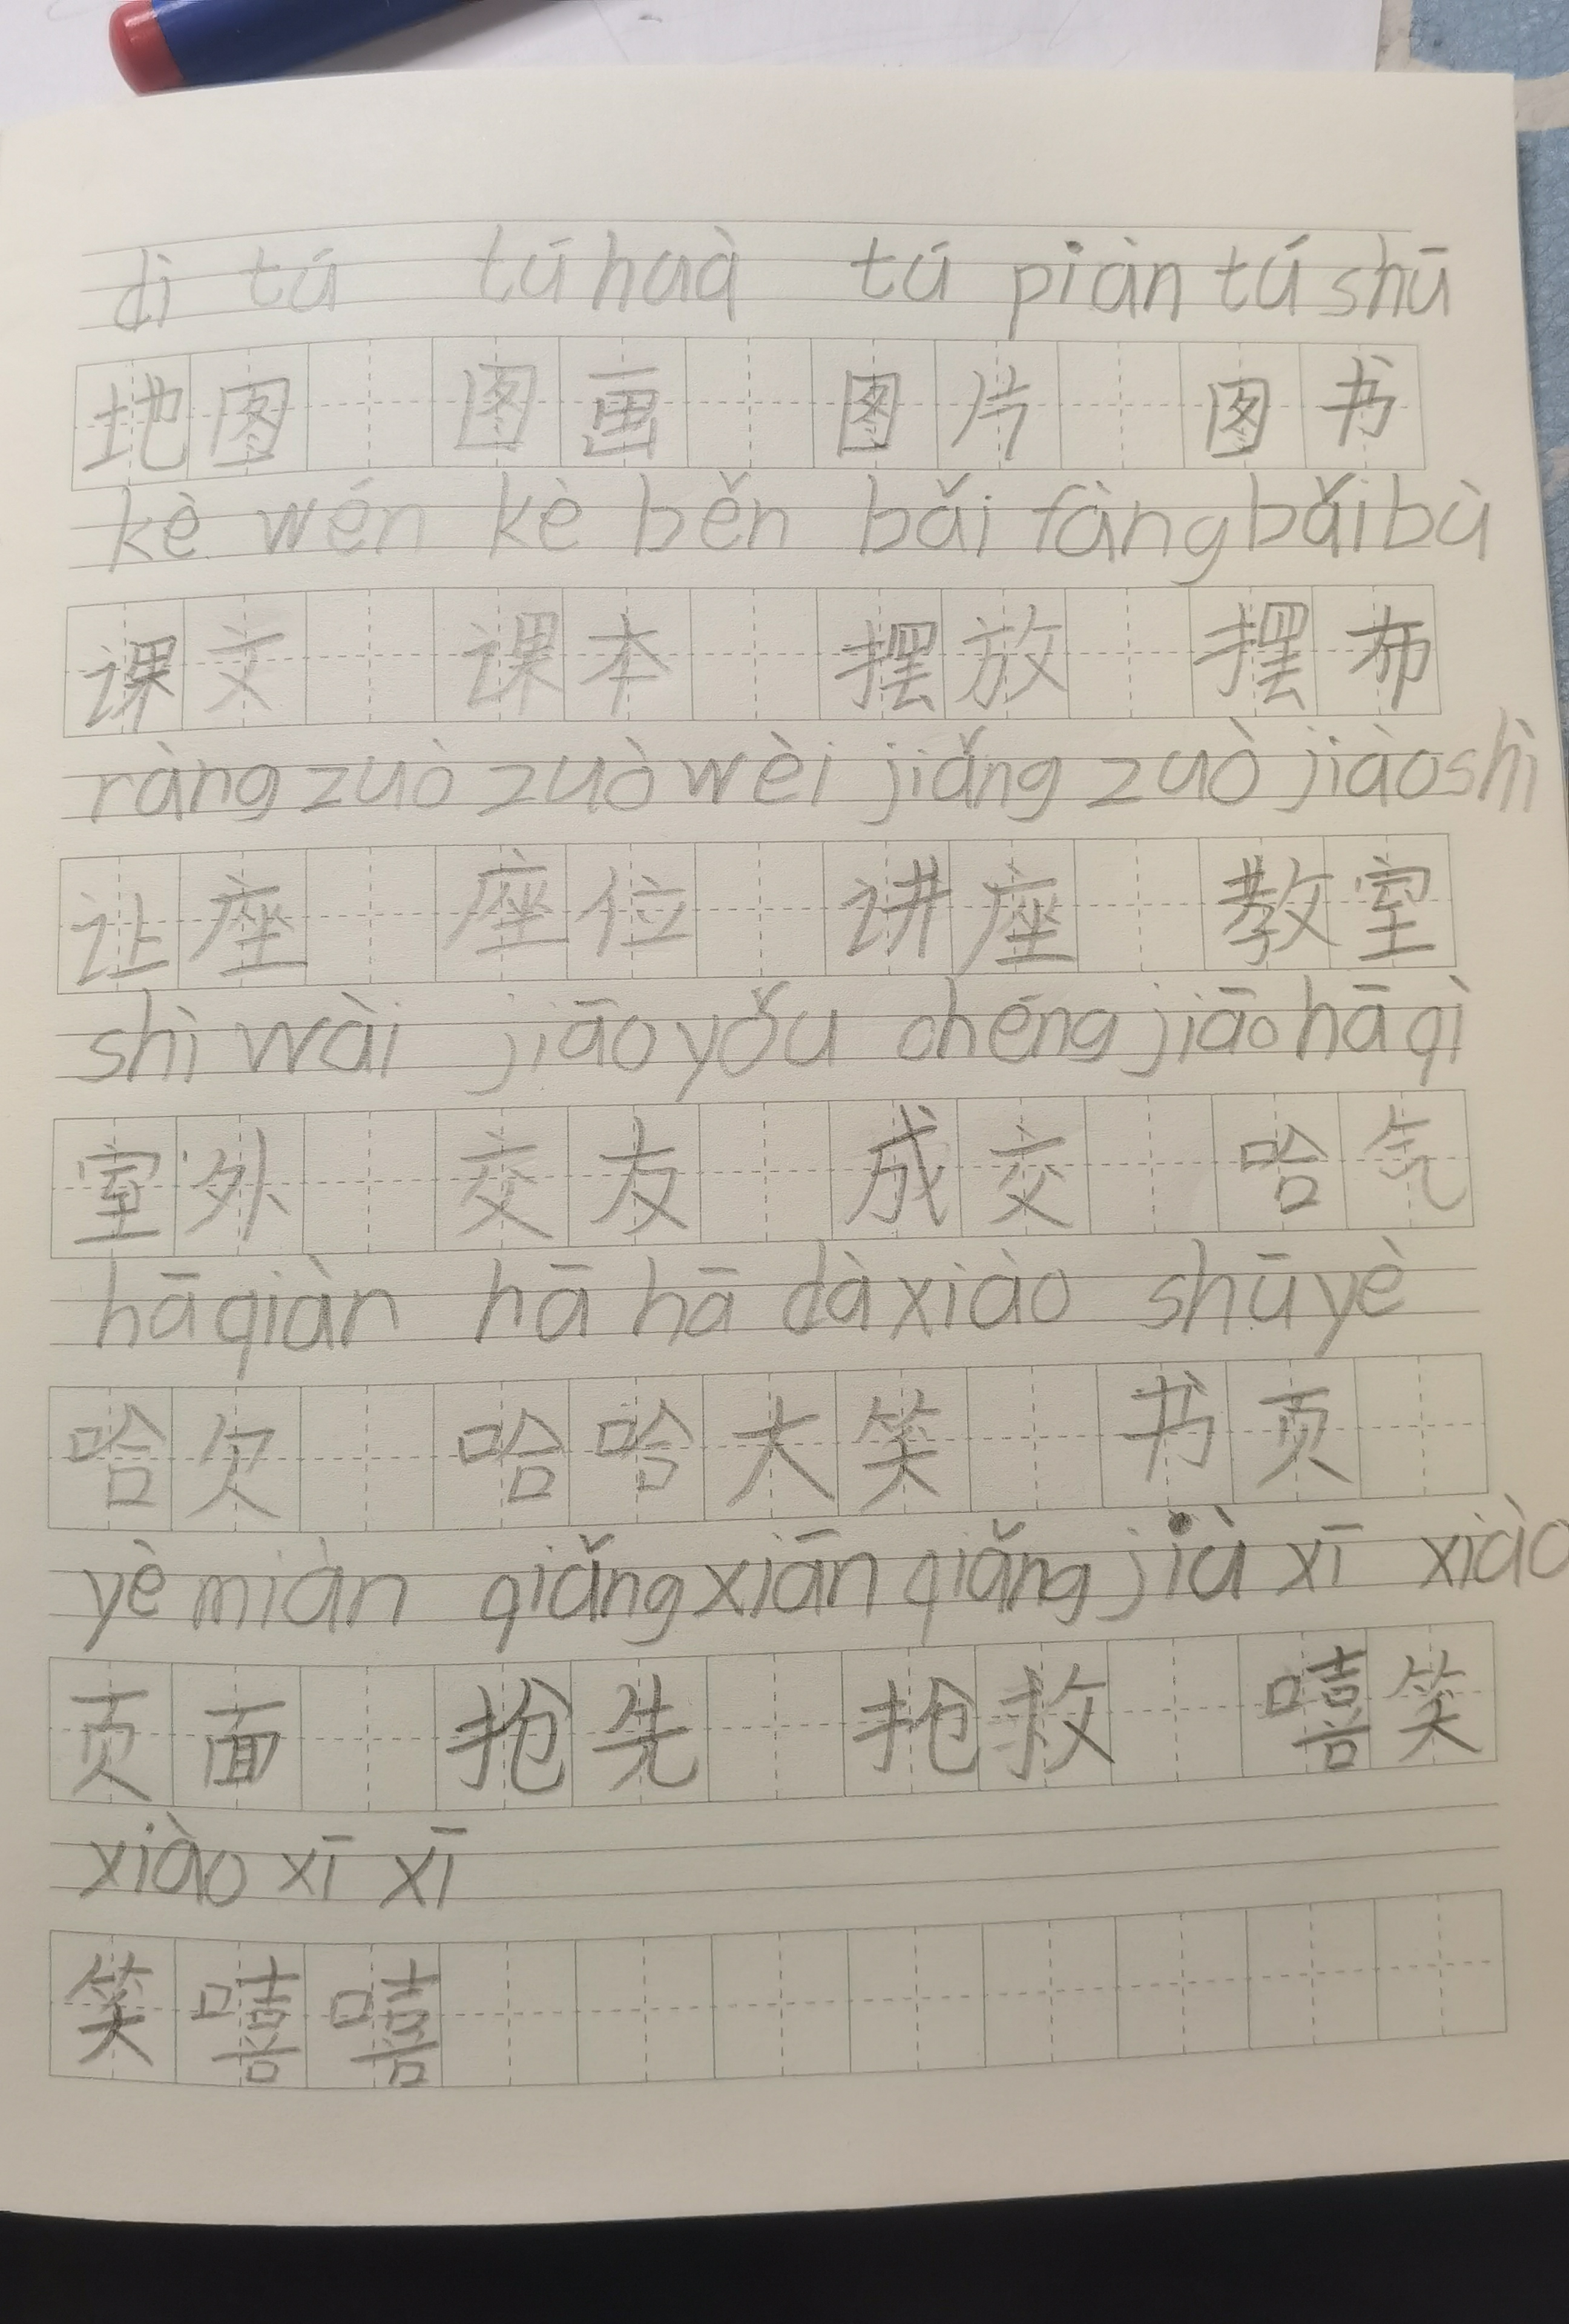 dì tú tú huà tú piàn tú shū
地图 图画 图片 图书
kè wén kè běn bǎi fàng bǎi bù
课文 课本 摆放 摆布
ràng zuò zuò wèi jiǎng zuò jiào shì
让座 座位 讲座 教室
shì wài jiāo yǒu chéng jiāo hā qì
室外 交友 成交 哈气
hā qiàn hā hā dà xiào shū yè
哈欠 哈哈大笑 书页
yè miàn qiǎng xiān qiǎng jiù xī xiào
页面 抢先 抢救 嘻笑
xiào xī xī
笑嘻嘻